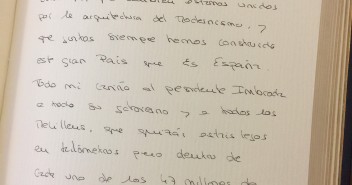 estamos unidos
por la arquitectura del Modernismo, y
que juntos siempre hemos construido
est gran País que Es España
Todo mi cariño al presidente Imbroda
a todo su gobierno y a todos los
que quizás estéis lejos
en kilómetros pero dentro de
cada uno de los 47 millones de